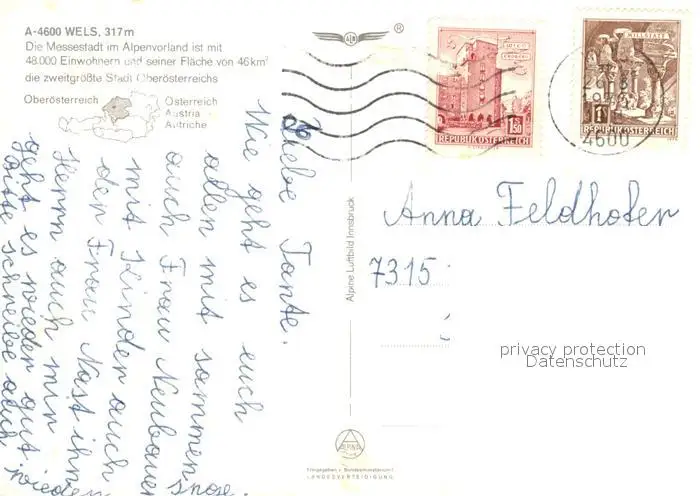 A-4600 WELS, 317m
Die Messestadt im Alpenvorland ist mit
48.000 Einwohnern und seiner Fläche von 46km²
die zweitgrößte Stadt Oberösterreichs
Oberösterreich
Österreich
Austria
Autriche
Liebe Tante.
Wie geht es euch
allen mit sammen
auch Frau Neubauer
mit Kinder auch
der Frau Nast ihn
Herrn auch mir
geht es wieder gut
bitte schreibe auch wieder
Alpine Luftbild Innsbruck
®
WIEN
REPUBLIK ÖSTERREICH
1.50
MILLSTATT
1
REPUBLIK ÖSTERREICH
4600
Anna Feldhofer
7315
privacy protection
Datenschutz
ALPINE
Freigegeben v. Bundesministerium f.
LANDESVERTEIDIGUNG